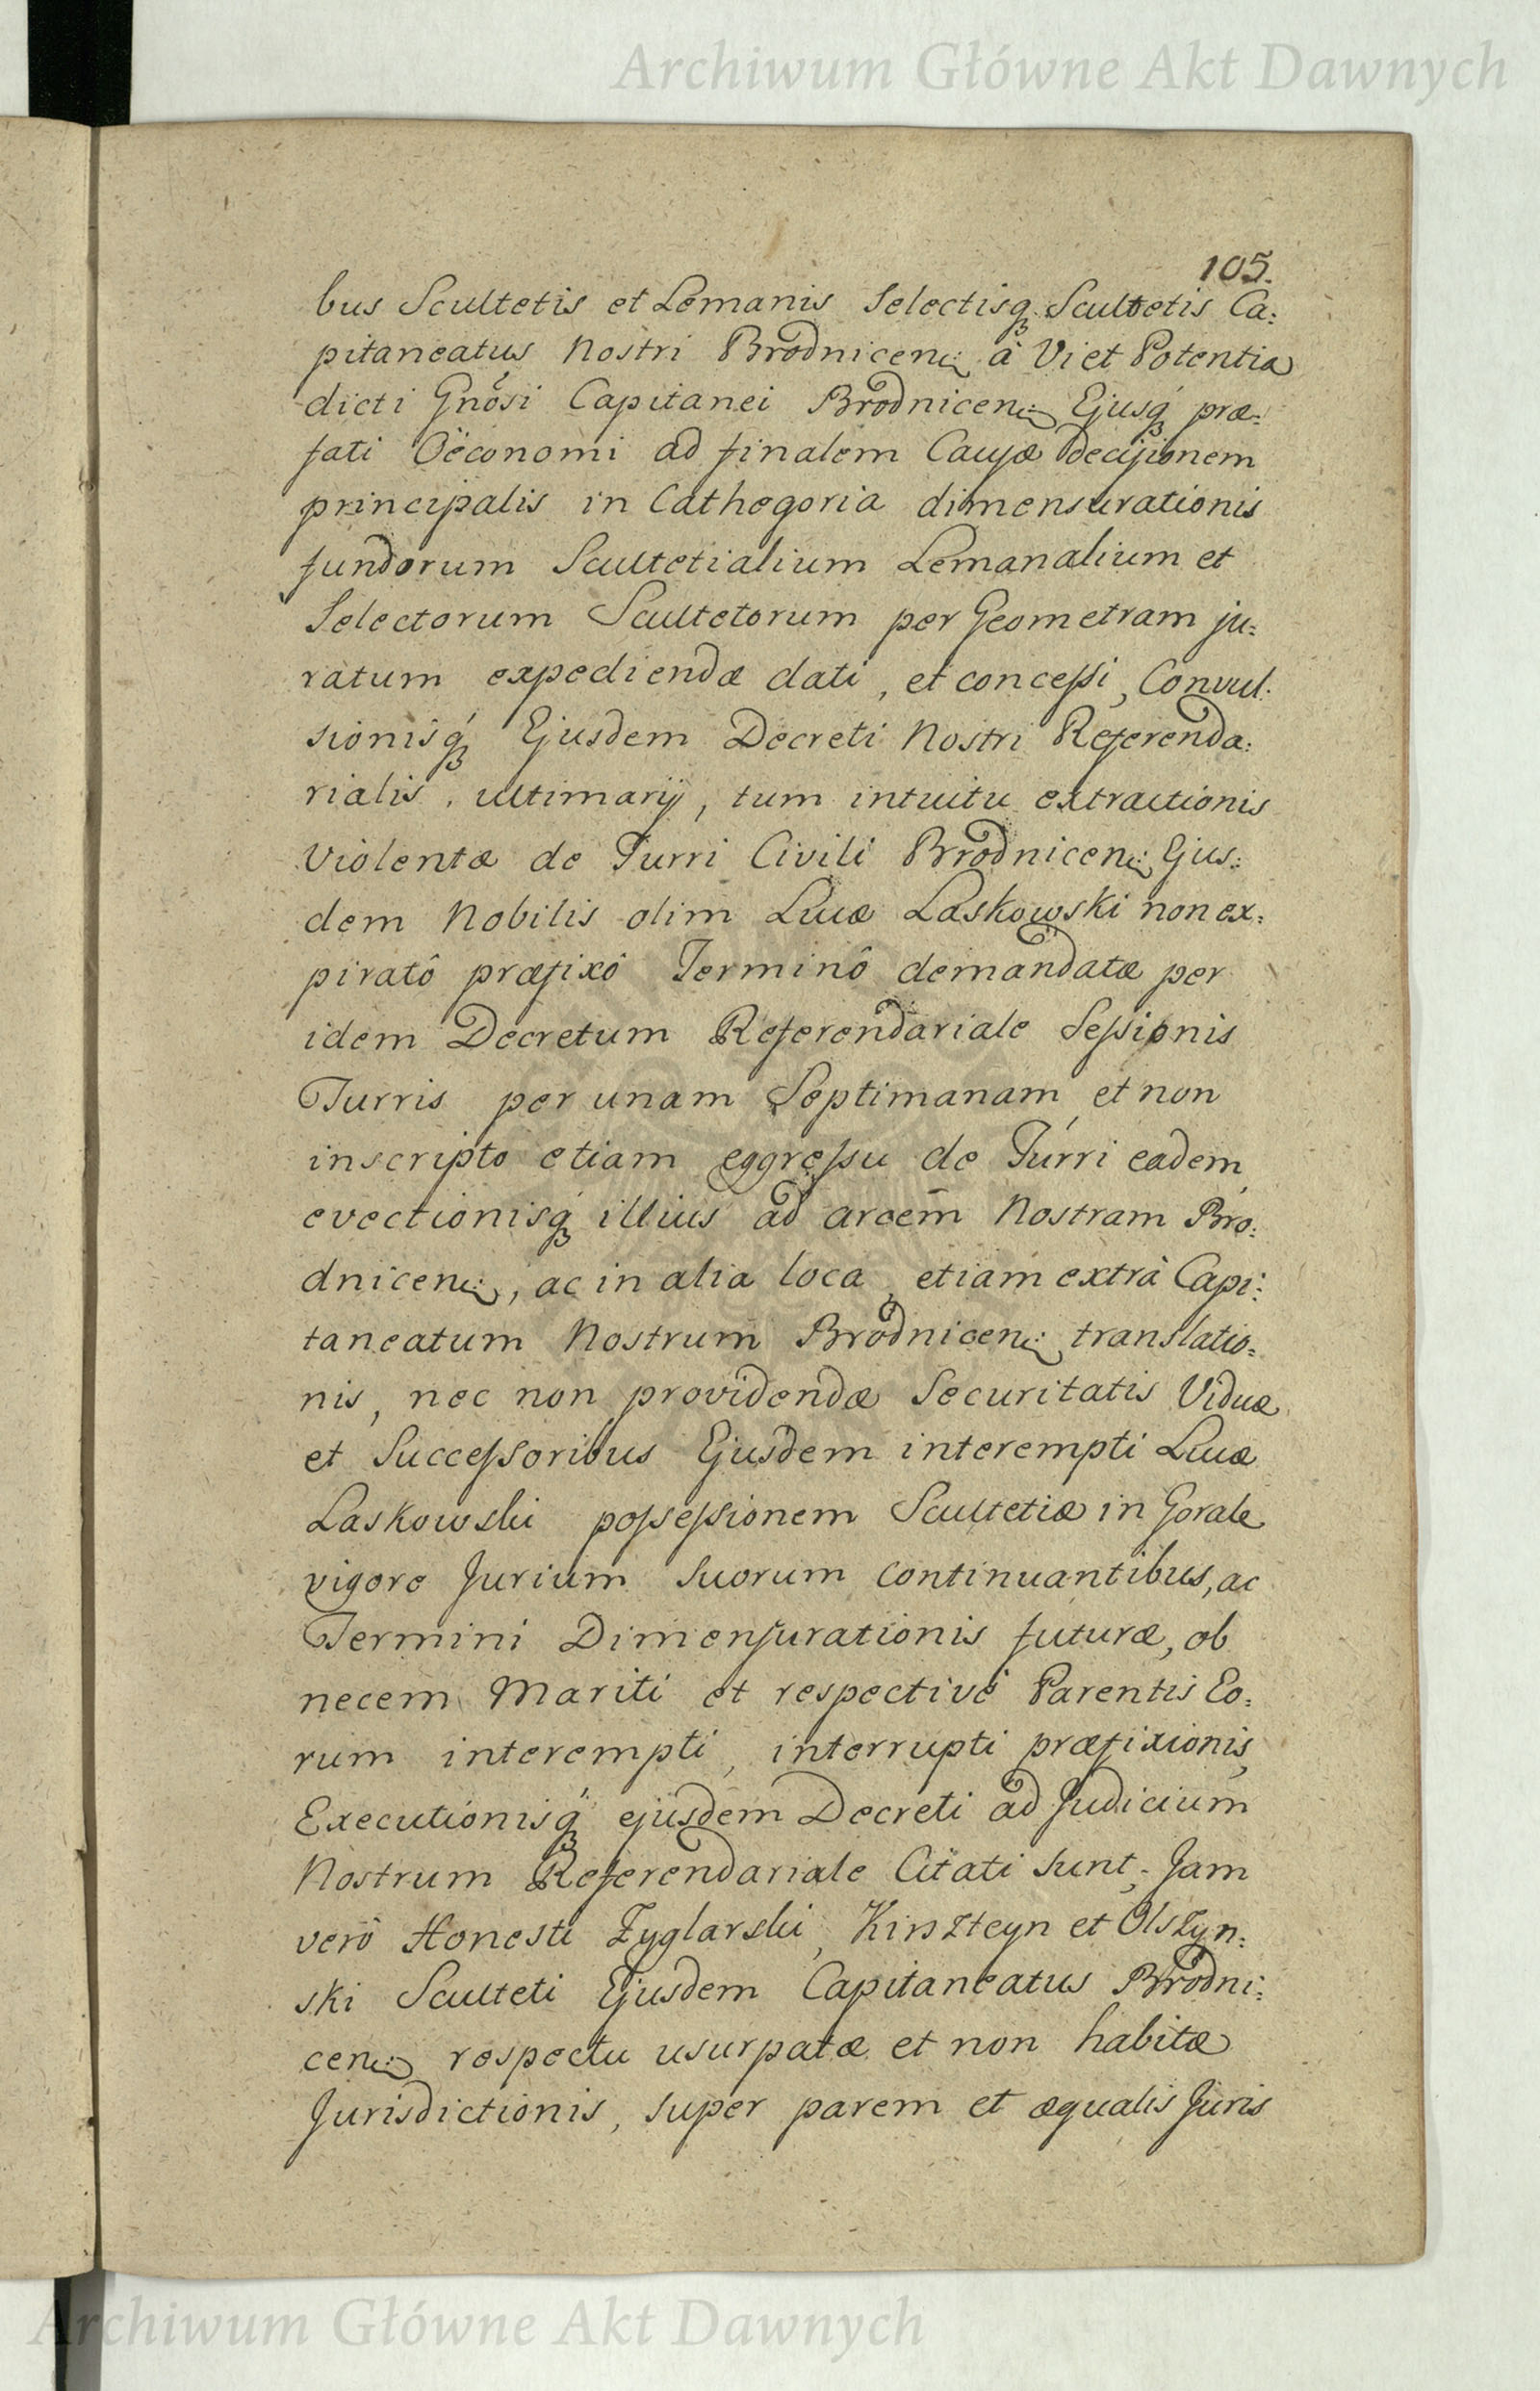 Archiwum Główne Akt Dawnych
105.
bus Scultetis et Lemanis Selectisq́; Scultetis Ca:
pitaneatus Nostri Brodnicen: à Vi et Potentia
dicti Gnősi Capitanei Brodnicen: Ejusq́; præ:
fati Oëconomi ad finalem Causæ decisionem
principalis in Cathegoria dimensurationis
fundorum Scultetialium Lemanalium et
Selectorum Scultetorum per Geometram ju:
ratum expediendæ dati, et concessi, Convul:
sionisq́; Ejusdem Decreti Nostri Referenda:
rialis, ultimarij, tum intuitu extractionis
violentæ de Turri Civili Brodnicen: Ejus:
dem Nobilis olim Lucæ Laskowski non ex:
piratô præfixô Terminô demandatæ per
idem Decretum Referendariale Sessionis
Turris per unam Septimanam et non
inscripto etiam eggressu de Turri eadem,
evectionisq́; illius ad arcem̄ Nostram Bro:
dnicen:, ac in alia loca, etiam extrà Capi:
taneatum Nostrum Brodnicen: translatio:
nis, nec non providendæ Securitatis Viduæ
et Successoribus Ejusdem interempti Lucæ
Laskowski possessionem Scultetiæ in Gorale
vigore Jurium suorum continuantibus, ac
Termini Dimensurationis futuræ, ob
necem Mariti et respectivè Parentis Eo:
rum interempti, interrupti præfixionis,
Executionisq́; ejusdem Decreti ad Judicium
Nostrum Referendariale Citati sunt; Jam
verò Honesti Zyglarski, Kinszteyn et Olszyn:
ski Sculteti Ejusdem Capitaneatus Brodni:
cen: respectu usurpatæ et non habitæ
Jurisdictionis, super parem et æqualis Juris
Archiwum Główne Akt Dawnych